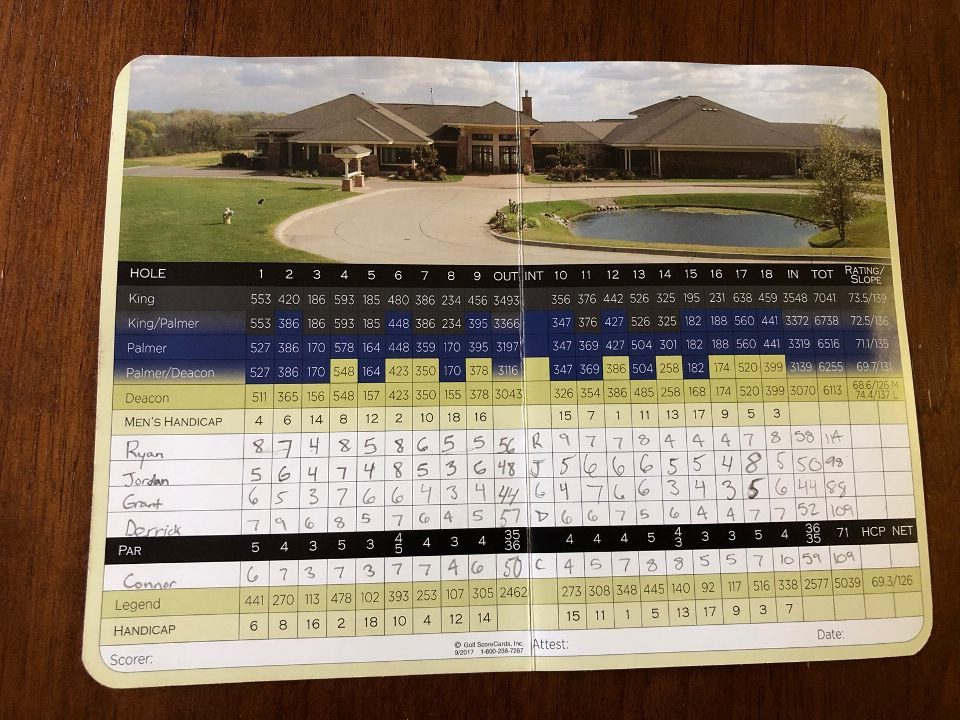 HOLE 1 2 3 4 5 6 7 8 9 OUT INT 10 11 12 13 14 15 16 17 18 IN TOT RATING/SLOPE
King 553 420 186 593 185 480 386 234 456 3493 356 376 442 526 325 195 231 638 459 3548 7041 73.5/139
King/Palmer 553 386 186 593 185 448 386 234 395 3366 347 376 427 526 325 182 188 560 441 3372 6738 72.5/136
Palmer 527 386 170 578 164 448 359 170 395 3197 347 369 427 504 301 182 188 560 441 3319 6516 71.1/135
Palmer/Deacon 527 386 170 548 164 423 350 170 378 3116 347 369 386 504 258 182 174 520 399 3139 6255 69.7/131
Deacon 511 365 156 548 157 423 350 155 378 3043 326 354 386 485 258 168 174 520 399 3070 6113 68.6/126 M 74.4/137 L
MEN'S HANDICAP 4 6 14 8 12 2 10 18 16 15 7 1 11 13 17 9 5 3
Ryan 8 7 4 8 5 8 6 5 5 56 R 9 7 7 8 4 4 4 7 8 58
Jordan 5 6 4 7 4 8 5 3 6 48 J 5 6 6 6 5 5 4 8 5 50 98
Grant 6 5 3 7 6 6 4 3 4 44 G 4 7 6 6 3 4 3 5 6 44 88
Derrick 7 9 6 8 5 7 6 4 5 57 D 6 6 7 5 6 4 4 7 7 52 109
PAR 5 4 3 5 3 4/5 4 3 4 35/36 4 4 4 5 4/3 3 3 5 4 36/35 71 HCP NET
Connor 6 7 3 7 3 7 7 4 6 50 C 4 5 7 8 8 5 5 7 10 59 109
Legend 441 270 113 478 102 393 253 107 305 2462 273 308 348 445 140 92 117 516 338 2577 5039 69.3/126
HANDICAP 6 8 16 2 18 10 4 12 14 15 11 1 5 13 17 9 3 7
Scorer: © Golf ScoreCards, Inc. Attest: Date:
9/2017 1-800-238-7267